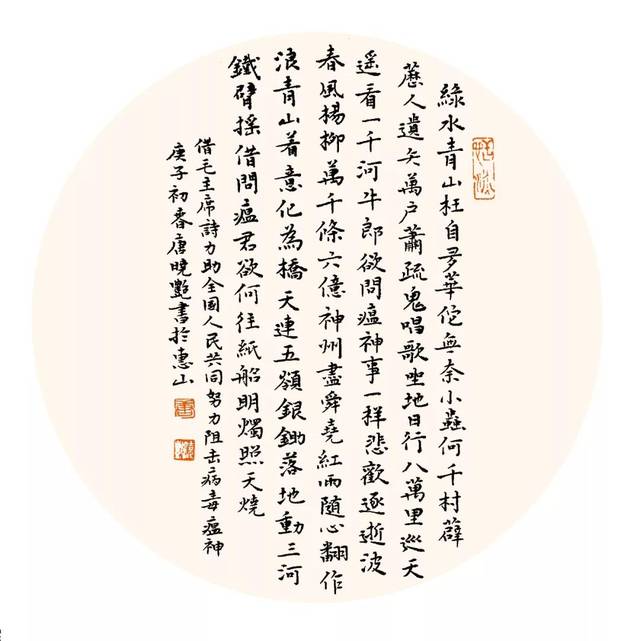 綠水青山枉自多華佗無奈小蟲何千村薜
藶人遺矢萬戶蕭疏鬼唱歌坐地日行八萬里巡天
遥看一千河牛郎欲問瘟神事一樣悲歡逐逝波
春風楊柳萬千條六億神州盡舜堯紅雨隨心翻作
浪青山着意化為橋天連五嶺銀鋤落地動三河
鐵臂搖借問瘟君欲何往紙船明燭照天燒
借毛主席詩力助全國人民共同努力阻击病毒瘟神
庚子初春唐曉艷書於惠山